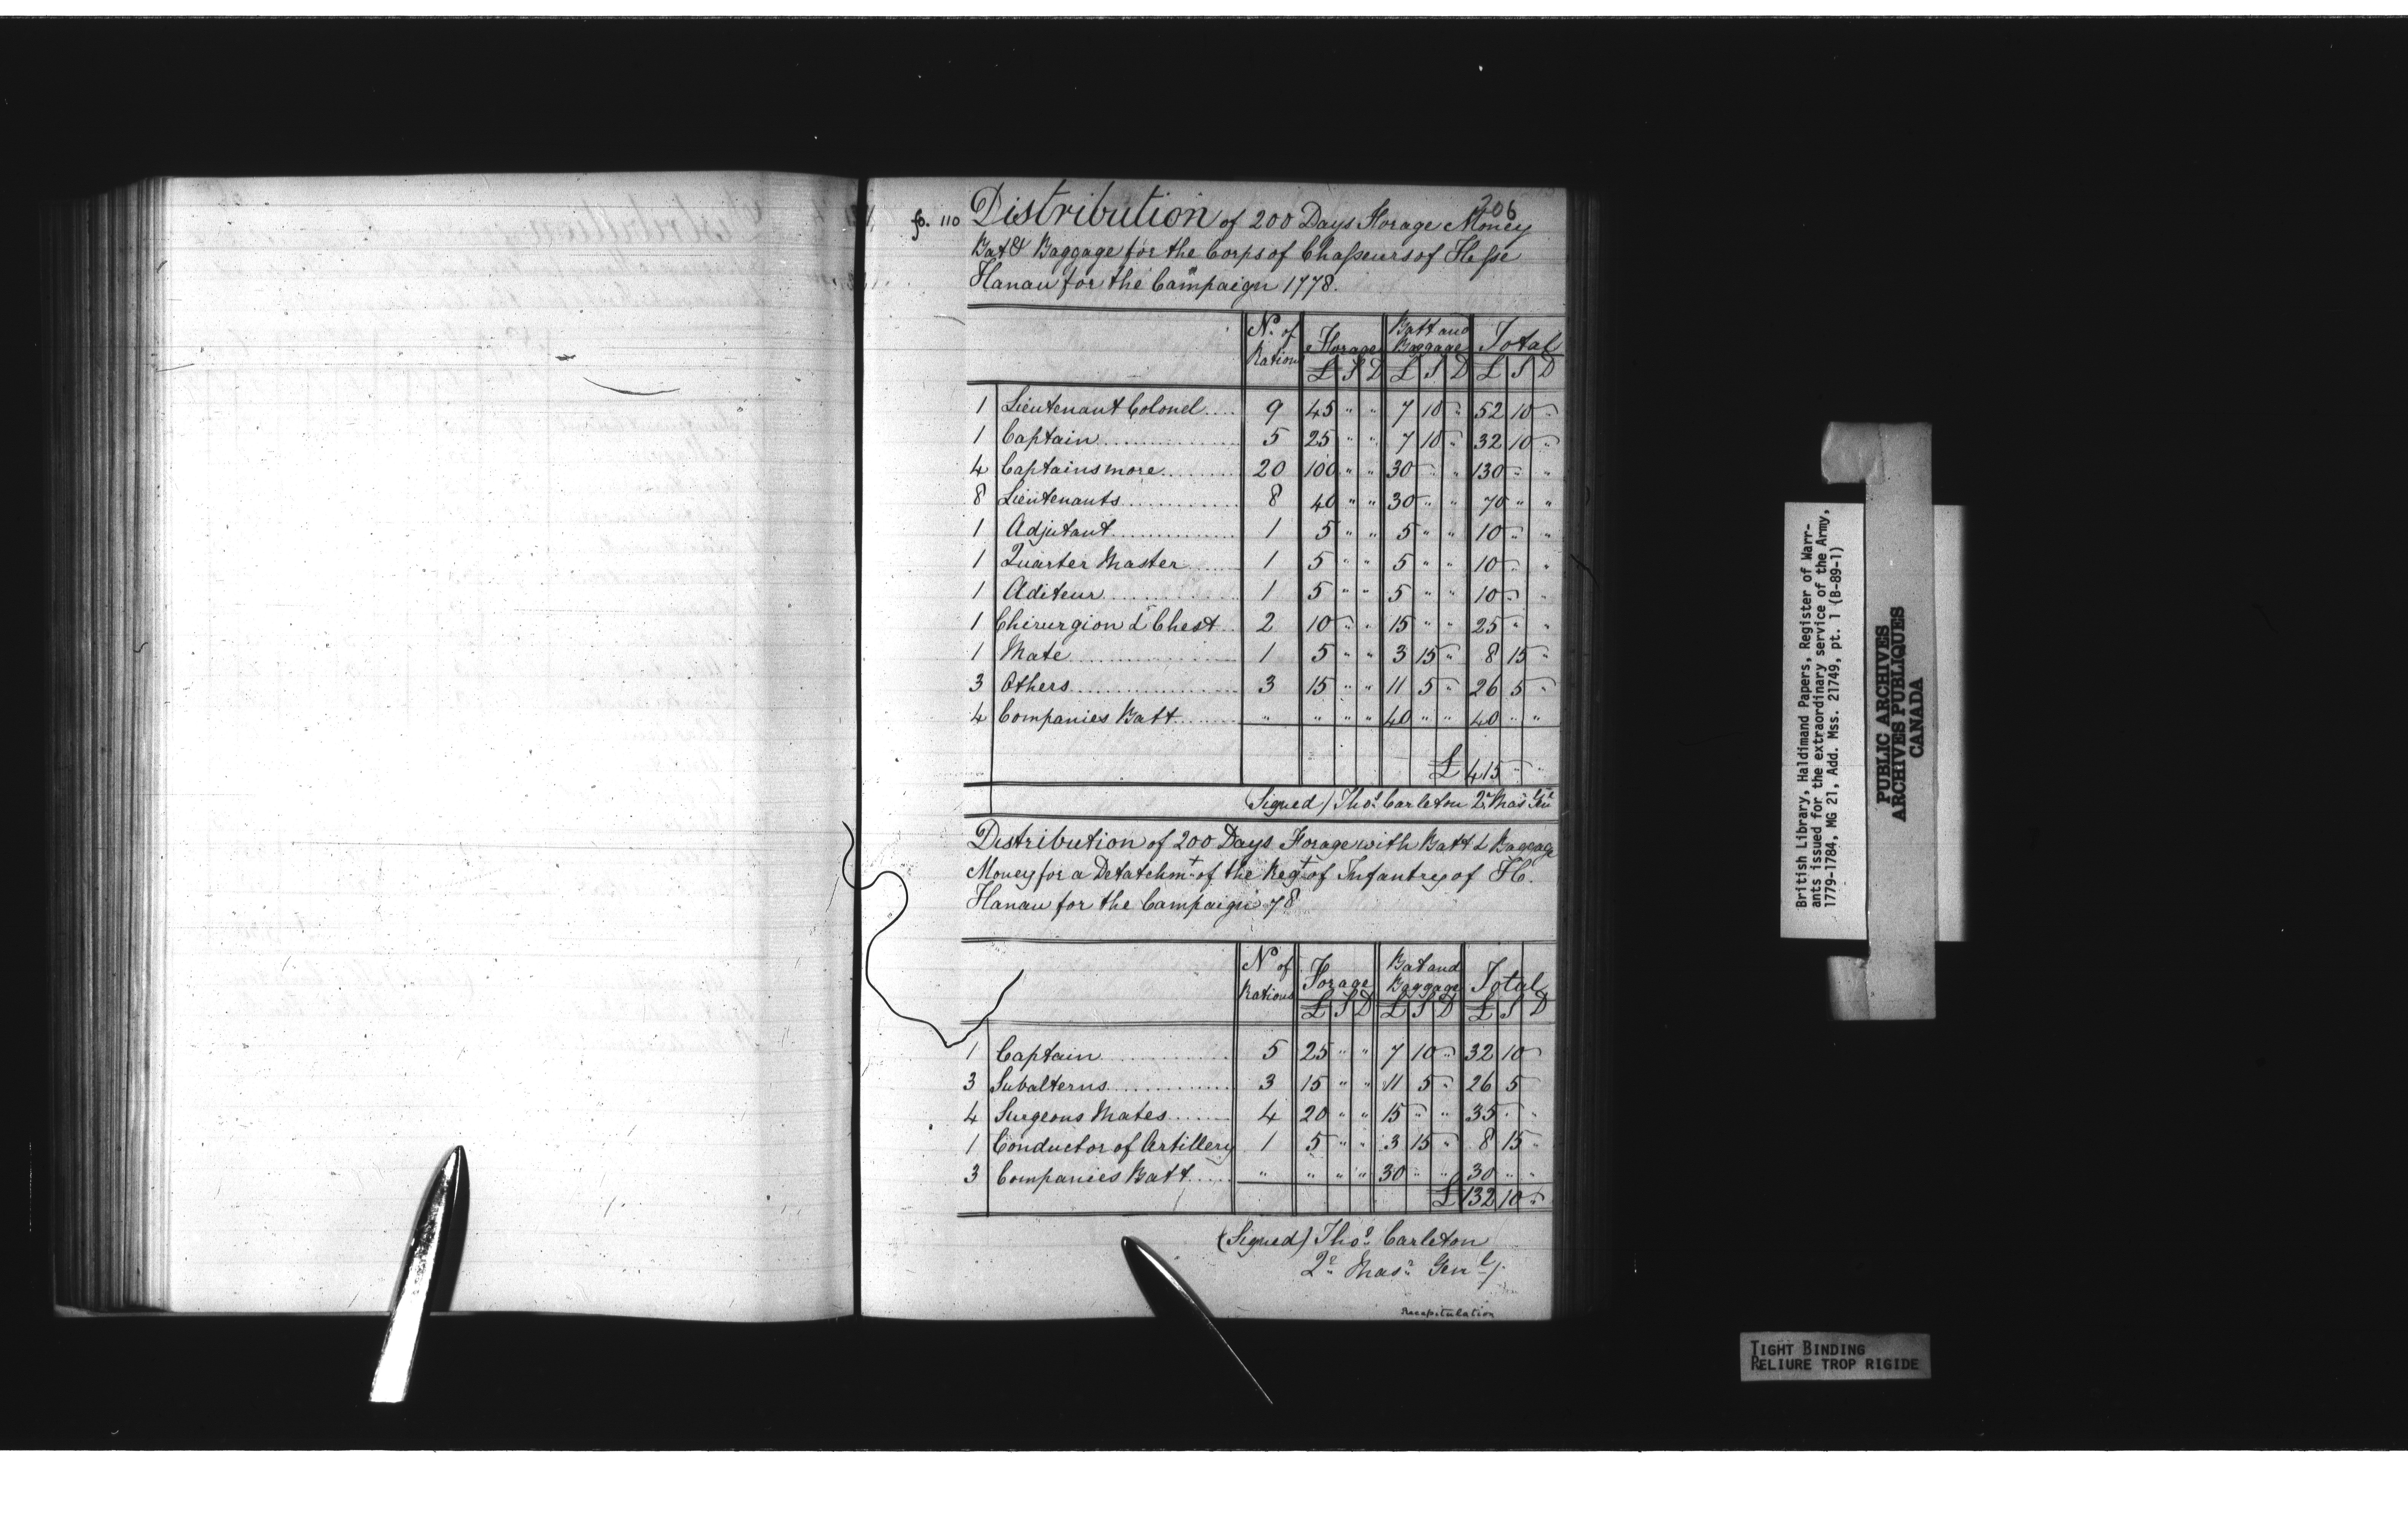 206
fo. 110 Distribution of 200 Days Forage Money
Bat & Baggage for the Corps of Chasseurs of Hesse
Hanau for the Campaign 1778.
No. of Rations | Forage £ S D | Batt and Baggage £ S D | Total £ S D
1 Lieutenant Colonel.... 9 45 " " 7 10 " 52 10 "
1 Captain.... 5 25 " " 7 10 " 32 10 "
4 Captains more.... 20 100 " " 30 " " 130 " "
8 Lieutenants.... 8 40 " " 30 " " 70 " "
1 Adjutant.... 1 5 " " 5 " " 10 " "
1 Quarter Master.... 1 5 " " 5 " " 10 " "
1 Aditeur.... 1 5 " " 5 " " 10 " "
1 Chirurgion & Chest.. 2 10 " " 15 " " 25 " "
1 Mate.... 1 5 " " 3 15 " 8 15 "
3 Others.... 3 15 " " 11 5 " 26 5 "
4 Companies Batt.... " " " " 40 " " 40 " "
£ 415 " "
(Signed) Thos. Carleton Qr. Masr. Genl.
Distribution of 200 Days Forage with Batt & Baggage
Money for a Detatchmt. of the Regt. of Infantry of H.
Hanau for the Campaign 78
No of Rations | Forage £ S D | Bat and Baggage £ S D | Total £ S D
1 Captain.... 5 25 " " 7 10 " 32 10
3 Subalterns.... 3 15 " " 11 5 " 26 5
4 Surgeons Mates.... 4 20 " " 15 " " 35 " "
1 Conductor of Artillery 1 5 " " 3 15 " 8 15 "
3 Companies Batt.... " " " " 30 " " 30 " "
£ 132 10 "
(Signed) Thos. Carleton
Qr. Masr. Genl.
Recapitulation
British Library, Haldimand Papers, Register of Warr-
ants issued for the extraordinary service of the Army,
1779-1784, MG 21, Add. Mss. 21749, pt. 1 (B-89-1)
PUBLIC ARCHIVES
ARCHIVES PUBLIQUES
CANADA
TIGHT BINDING
RELIURE TROP RIGIDE